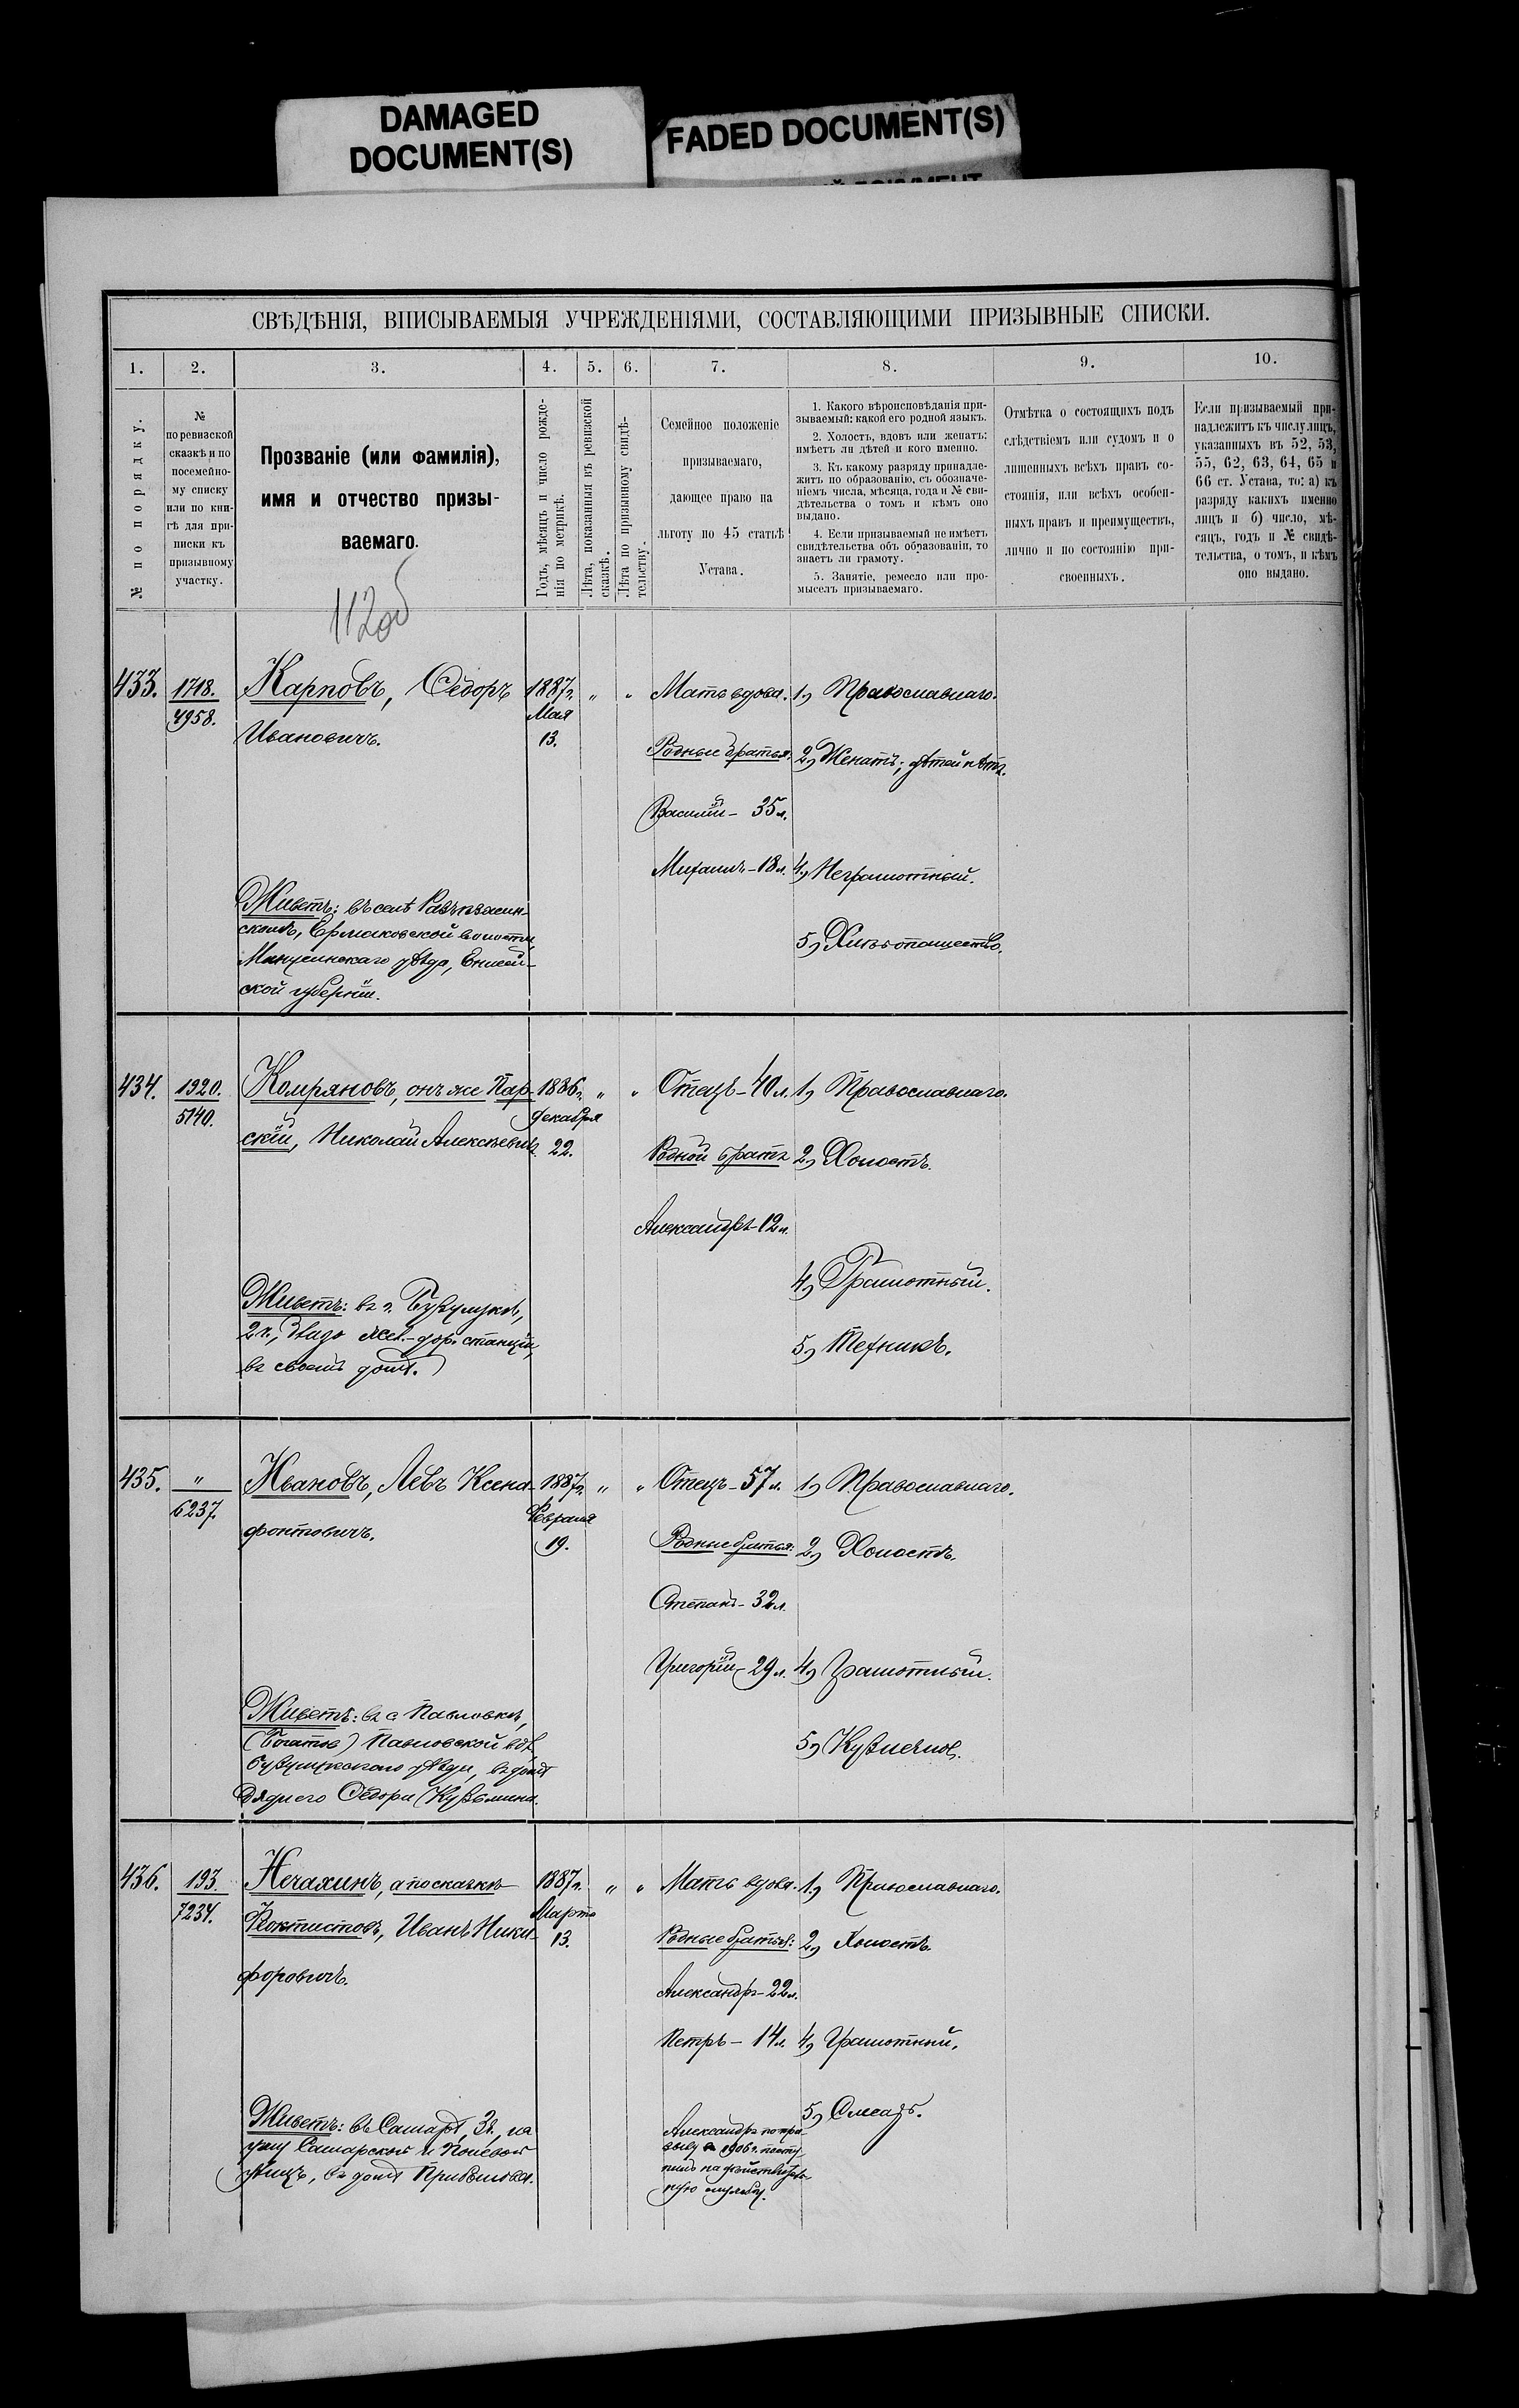 DAMAGED
DOCUMENT(S)
FADED DOCUMENT(S)
СВѢДѢНІЯ, ВПИСЫВАЕМЫЯ УЧРЕЖДЕНІЯМИ, СОСТАВЛЯЮЩИМИ ПРИЗЫВНЫЕ СПИСКИ.
1. 2. 3. 4. 5. 6. 7. 8. 9. 10.
№ по порядку.
№
по ревизской
сказкѣ и по
посемейно-
му списку
или по кни-
гѣ для при-
писки къ
призывному
участку.
Прозваніе (или фамилія),
имя и отчество призы-
ваемаго.
Годъ, мѣсяцъ и число рожде-
нія по метрикѣ.
Лѣта, показанныя въ ревизской
сказкѣ.
Лѣта по призывному свидѣ-
тельству.
Семейное положеніе
призываемаго,
дающее право на
льготу по 45 статьѣ
Устава.
1. Какого вѣроисповѣданія при-
зываемый: какой его родной языкъ.
2. Холостъ, вдовъ или женатъ:
имѣетъ ли дѣтей и кого именно.
3. Къ какому разряду принадле-
житъ по образованію, съ обозначе-
ніемъ числа, мѣсяца, года и № сви-
дѣтельства о томъ и кѣмъ оно
выдано.
4. Если призываемый не имѣетъ
свидѣтельства объ образованіи, то
знаетъ ли грамоту.
5. Занятіе, ремесло или про-
мыселъ призываемаго.
Отмѣтка о состоящихъ подъ
слѣдствіемъ или судомъ и о
лишенныхъ всѣхъ правъ со-
стоянія, или всѣхъ особен-
ныхъ правъ и преимуществъ,
лично и по состоянію при-
своенныхъ.
Если призываемый при-
надлежитъ къ числу лицъ,
указанныхъ въ 52, 53,
55, 62, 63, 64, 65 и
66 ст. Устава, то: а) къ
разряду какихъ именно
лицъ и б) число, мѣ-
сяцъ, годъ и № свидѣ-
тельства, о томъ, и кѣмъ
оно выдано.
112об
433.
1718.
4958.
Карповъ, Ѳедоръ
Ивановичъ.
Живетъ: въ селѣ
Ермаковской волости,
Минусинскаго уѣзда, Енисей-
ской губерніи.
1887г.
Мая
13.
" "
Мать вдова.
Родные братья:
Василій - 35 л.
Михаилъ - 18 л.
1, Православнаго.
2, Женатъ; дѣтей нѣтъ.
4, Неграмотный.
5, Хлѣбопашество.
434.
1920.
5140.
Комряновъ, онъ же Пар-
скій, Николай Алексѣевичъ.
Живетъ: въ г. Бузулукѣ,
2 ч., близъ жел.-дор. станціи,
въ своемъ домѣ.
1886г.
Декабря
22.
" "
Отецъ - 40 л.
Родной братъ
Александръ - 12 л.
1, Православнаго.
2, Холостъ.
4, Грамотный.
5, Техникъ.
435.
"
6237.
Ивановъ, Левъ Ксено-
фонтовичъ.
Живетъ: въ с. Павловкѣ,
(Богатое) Павловской вол.
Бузулукскаго уѣзда, въ домѣ
дяди его Ѳедора Кузьмина.
1887г.
Февраля
19.
" "
Отецъ - 57 л.
Родные братья:
Степанъ - 32 л.
Григорій - 29 л.
1, Православнаго.
2, Холостъ.
4, Грамотный.
5,
436.
193.
7234.
Нечахинъ, а по сказкѣ
Ѳоктистовъ, Иванъ Ники-
форовичъ.
Живетъ: въ Самарѣ, 3 ч., на
углу Самарской и Полевой
улицъ, въ домѣ
1887г.
Марта
13.
" "
Мать вдова.
Родные братья:
Александръ - 22 л.
Петръ - 14 л.
Александръ по при-
зыву 1906 г. посту-
пилъ на дѣйствитель-
ную службу.
1, Православнаго.
2, Холостъ.
4, Грамотный.
5, Слесарь.